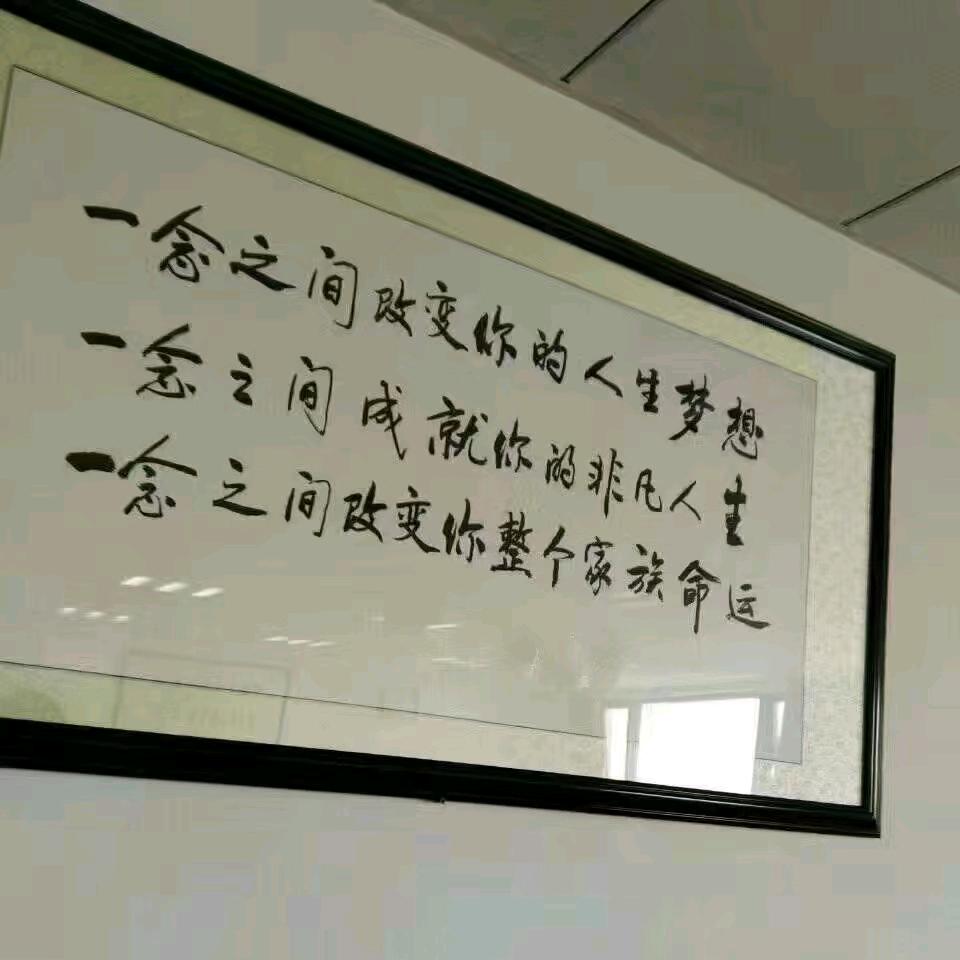 一念之间改变你的人生梦想
一念之间成就你的非凡人生
一念之间改变你整个家族命运